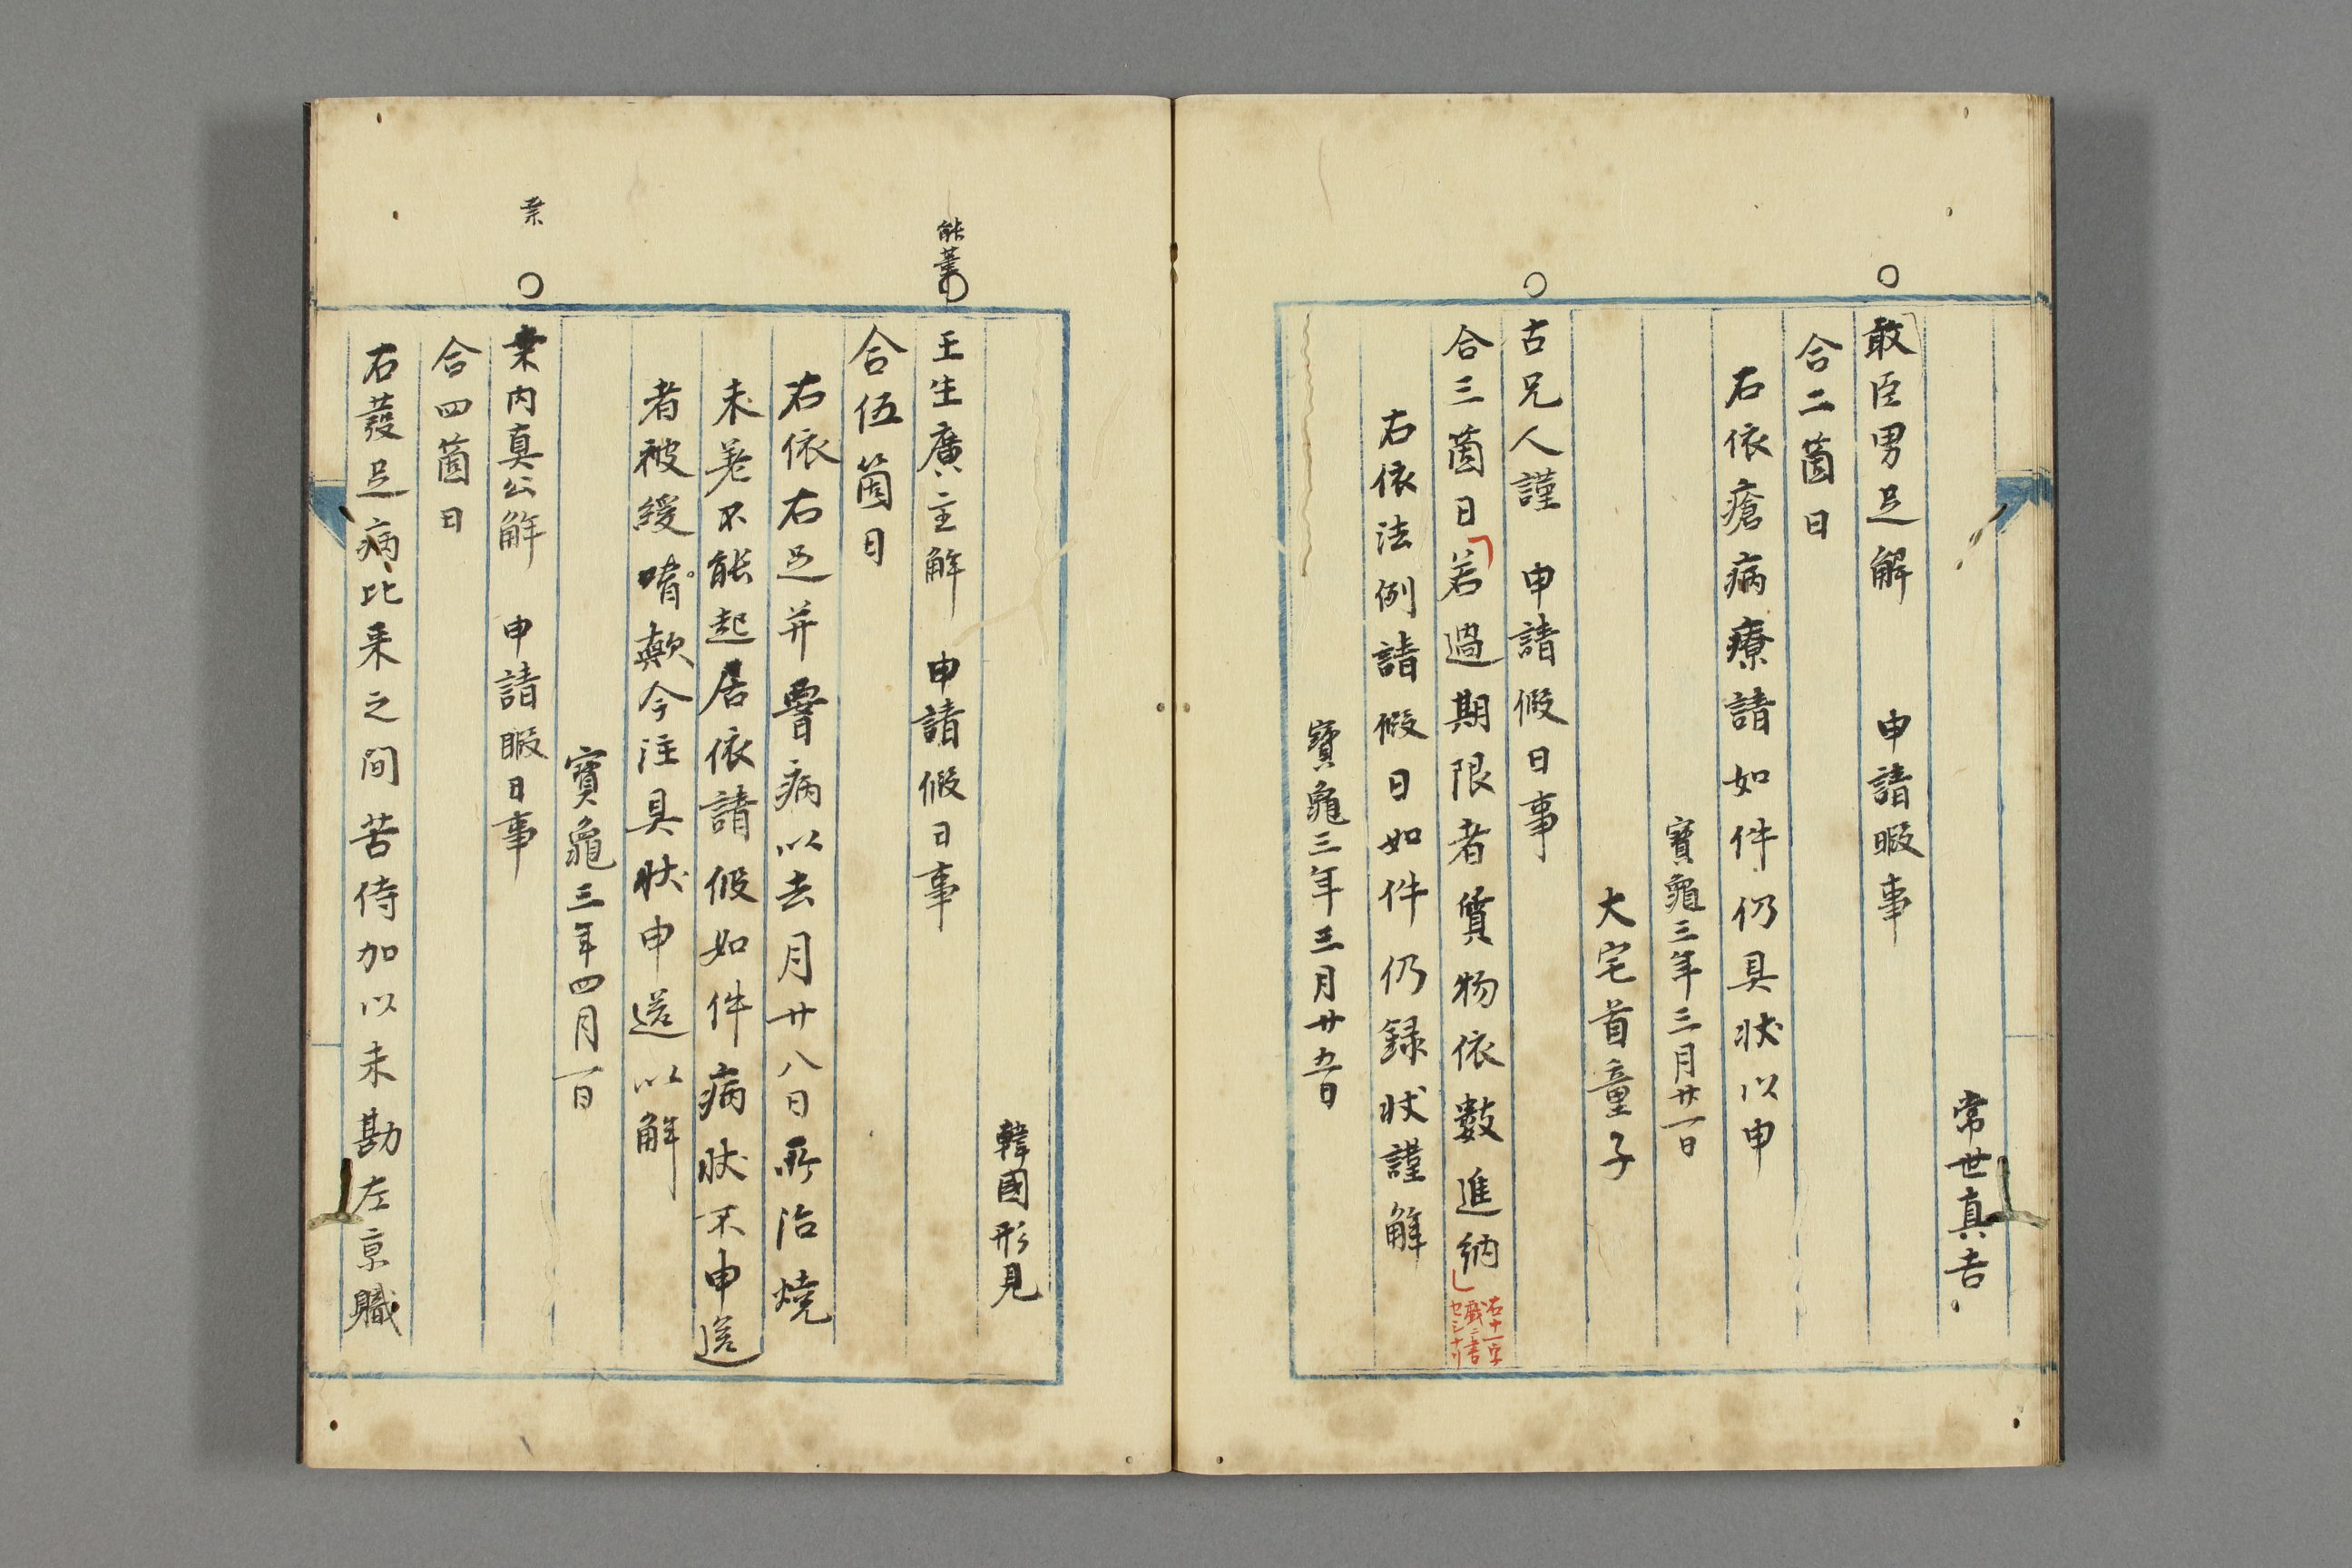 常世真吉
敢臣男足解　申請暇事
合二箇日
右依瘡病療請如件仍具状以申
寶龜三年三月廿一日
大宅首童子
古兄人謹　申請假日事
合三箇日若過期限者質物依數進納
右十一字
戯ニ書
セシナリ
右依法例請假日如件仍録状謹解
寶龜三年三月廿五日
韓國形見
王生廣主解　申請假日事
合伍箇日
右依右足并病以去月廿八日所治燒
未差不能起居依請假如件病状不申送
者被緩今注具状申送以解
寶龜三年四月一日
業
桒内真公解　申請暇日事
合四箇日
右發足病比来之間苦侍加以未勘左京職